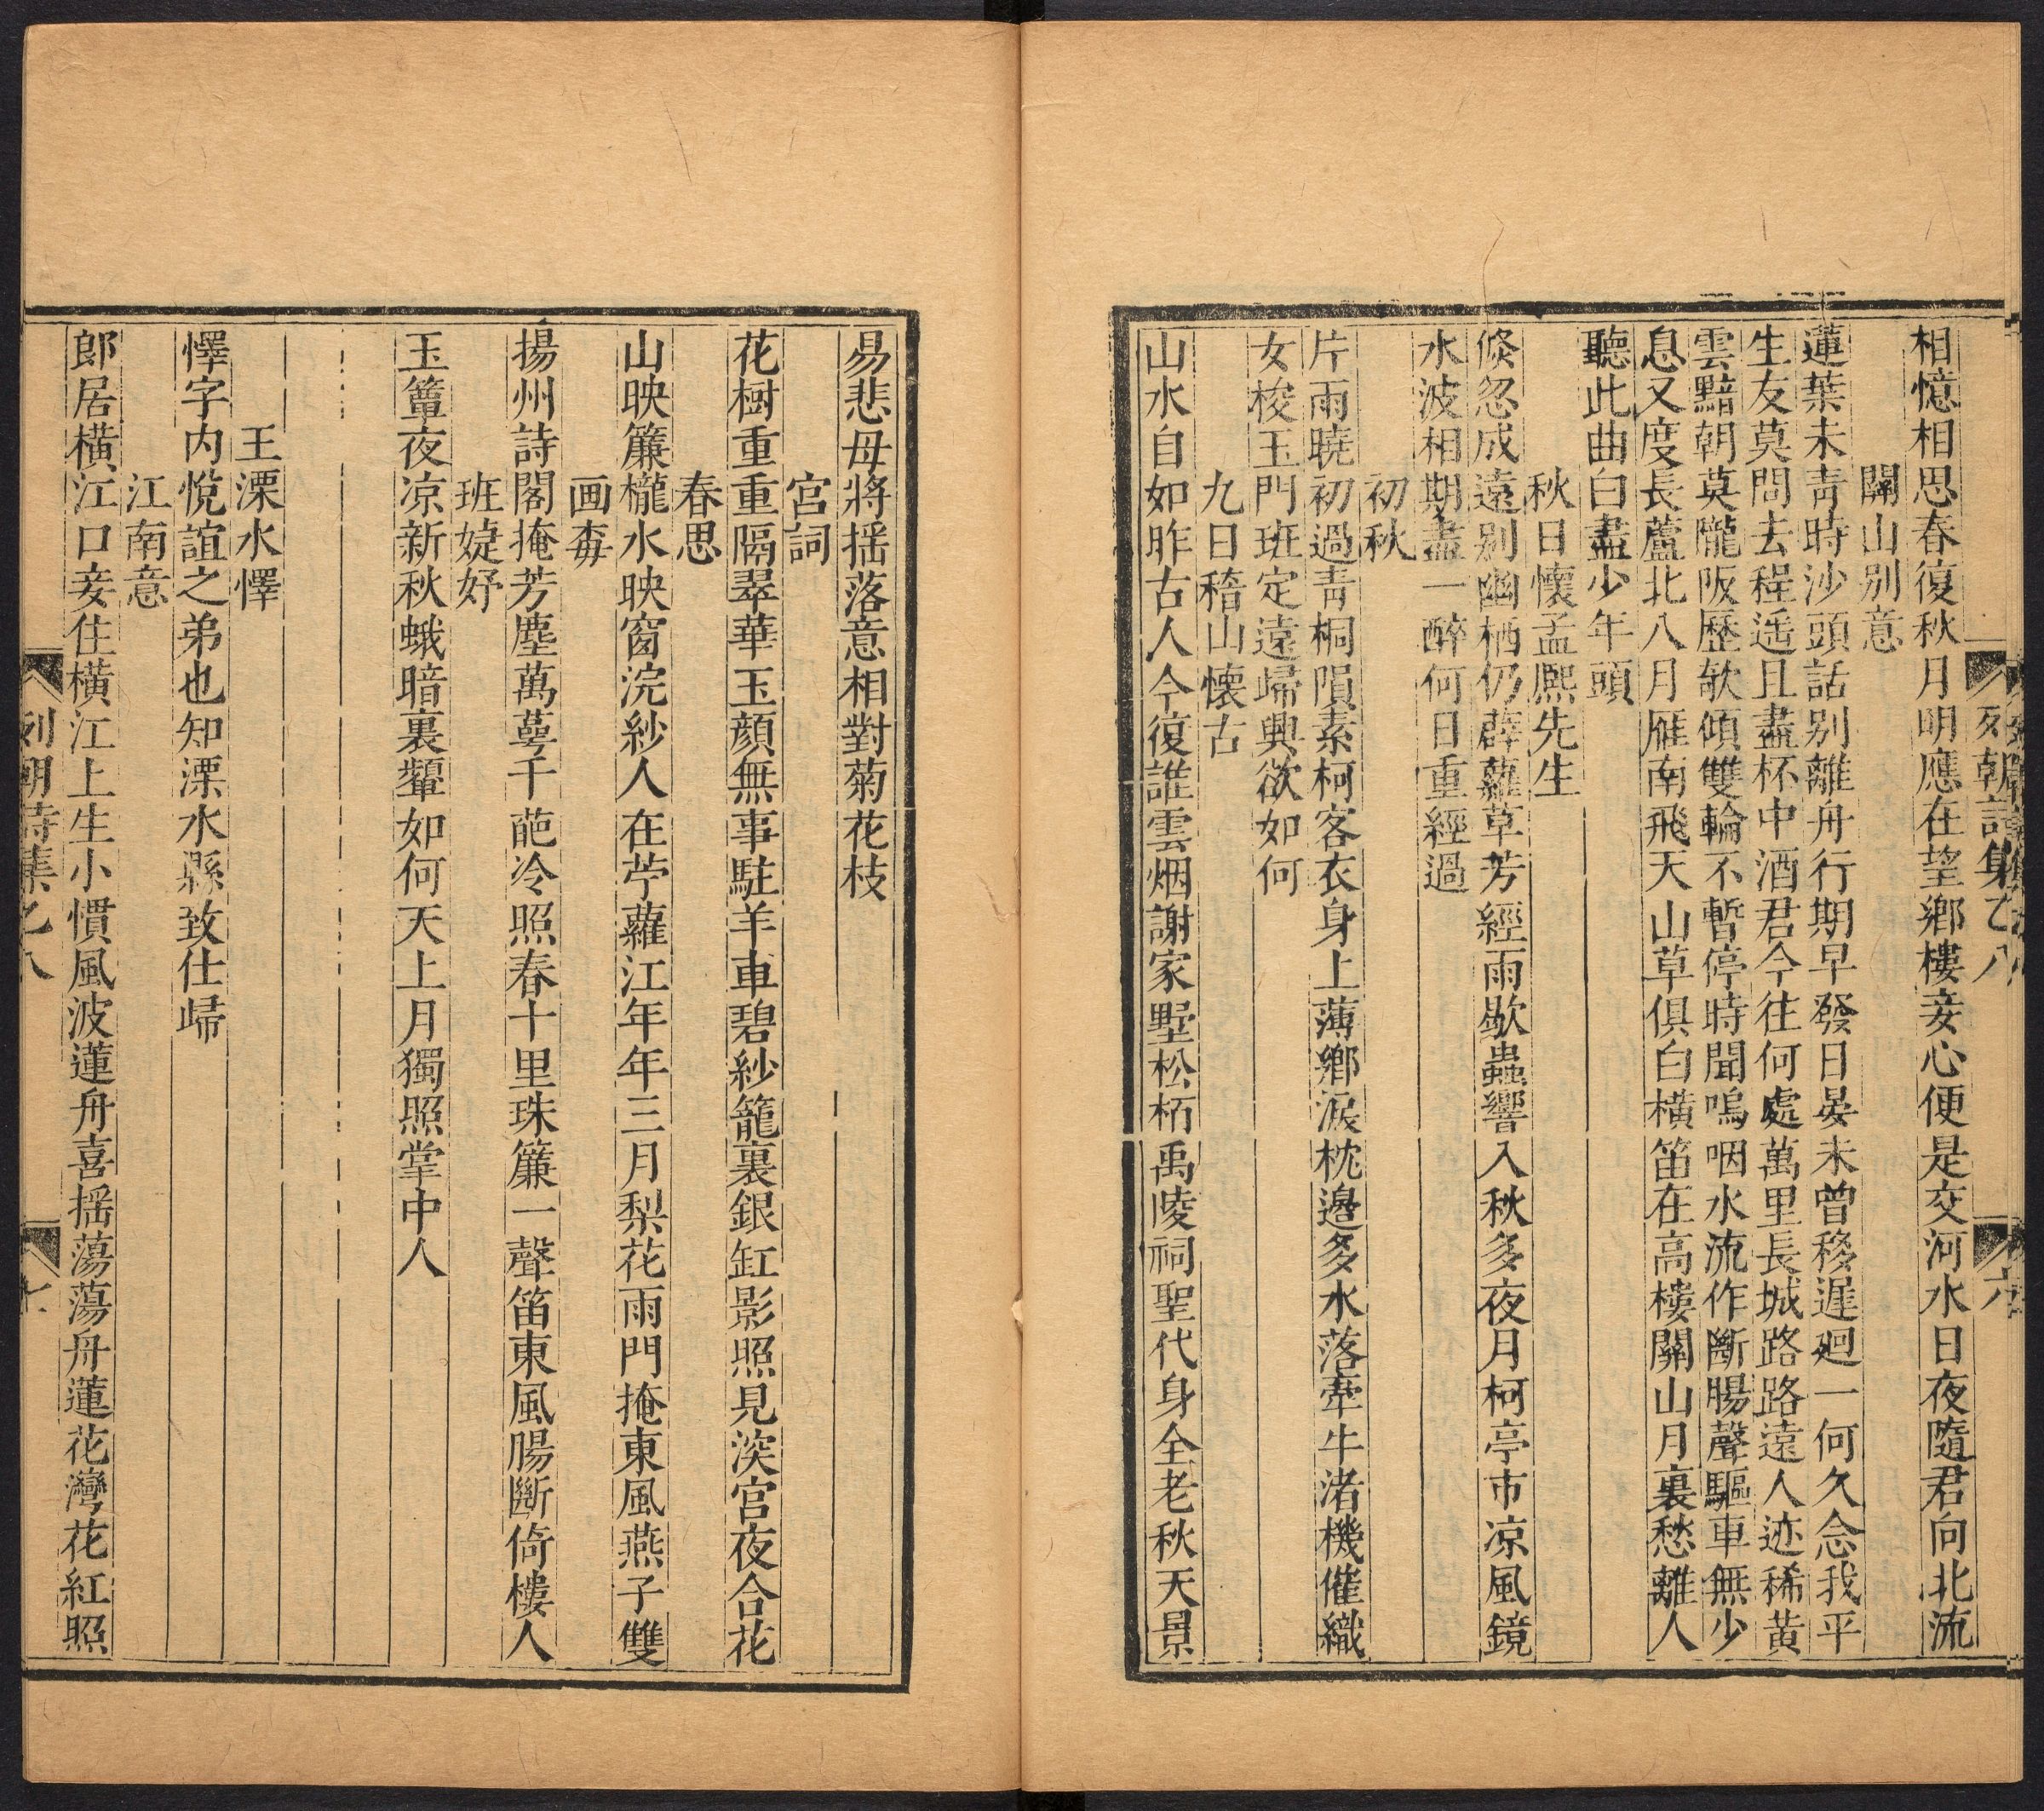 列朝詩集乙八
六
相憶相思春復秋月明應在望鄉樓妾心便是交河水日夜隨君向北流
關山别意
蓮葉未靑時沙頭話别離舟行期早發日晏未曾移遲廻一何久念我平
生友莫問去程遥且盡杯中酒君今往何處萬里長城路路遠人迹稀黄
雲黯朝莫隴阪歴欹傾雙輪不暫停時聞嗚咽水流作斷腸聲驅車無少
息又度長蘆北八月雁南飛天山草俱白橫笛在高樓關山月裏愁離人
聽此曲白盡少年頭
秋日懷孟熈先生
倐忽成遠别幽栖仍薜蘿草芳經雨歇蟲響入秋多夜月柯亭市凉風鏡
水波相期盡一醉何日重經過
初秋
片雨曉初過靑桐隕素柯客衣身上薄鄉淚枕邉多水落牽牛渚機催織
女梭玉門班定遠歸興欲如何
九日稽山懷古
山水自如昨古人今復誰雲烟謝家墅松栢禹陵祠聖代身全老秋天景
易悲毋將揺落意相對菊花枝
宫詞
花樹重重隔翠華玉顔無事駐羊車碧紗籠裏銀缸影照見深宫夜合花
春思
山映簾櫳水映窗浣紗人在苧蘿江年年三月梨花雨門掩東風燕子雙
画𣓪
揚州詩閣掩芳塵萬蕚千葩冷照春十里珠簾一聲笛東風腸斷倚樓人
班婕妤
玉簟夜凉新秋蛾暗裏顰如何天上月獨照掌中人
王溧水懌
懌字内悅誼之弟也知溧水縣致仕歸
江南意
郎居橫江口妾住橫江上生小慣風波蓮舟喜揺蕩蕩舟蓮花灣花紅照
列朝詩集乙八
七